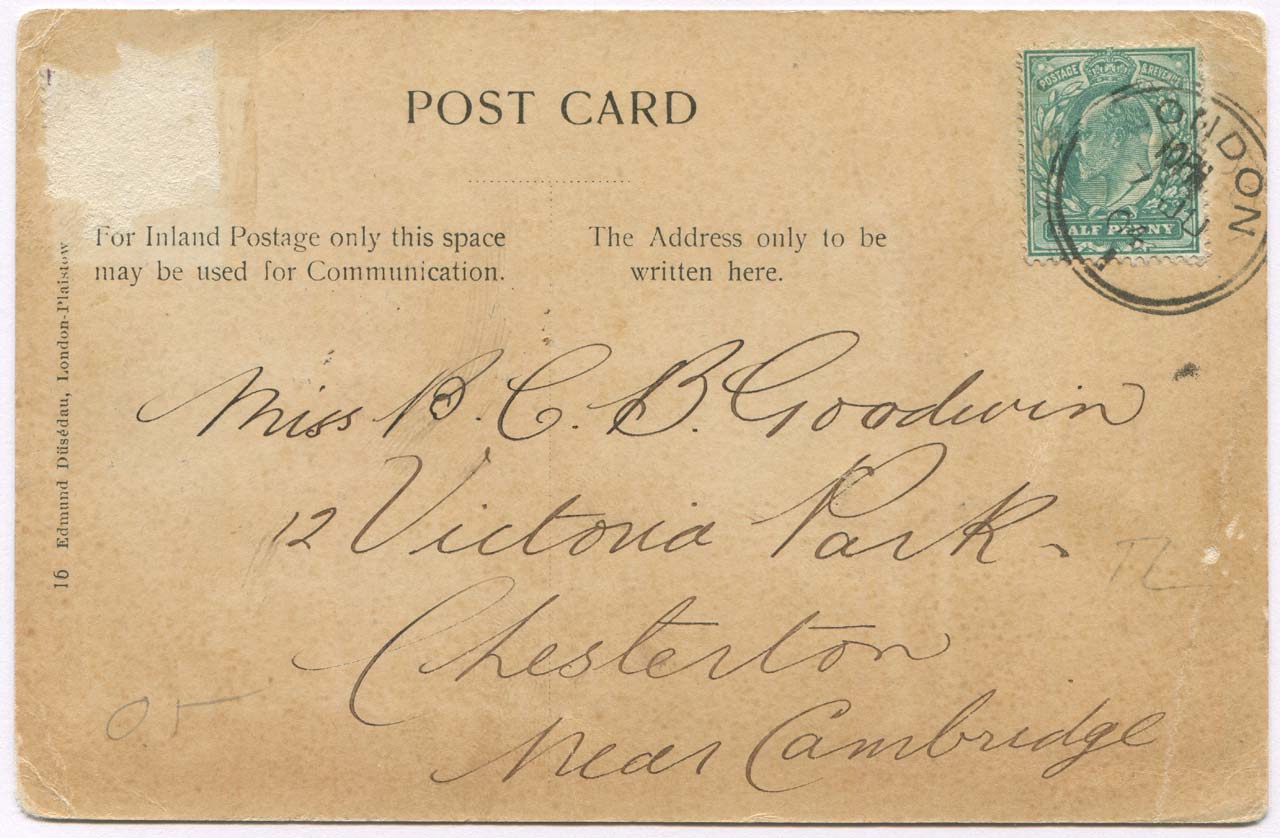 POST CARD
For Inland Postage only this space
may be used for Communication.
The Address only to be
written here.
POSTAGE & REVENUE
HALF PENNY
LONDON
Miss B. C. B. Goodwin
12 Victoria Park
Chesterton
Near Cambridge
16 Edmund Düsédau, London-Plaistow